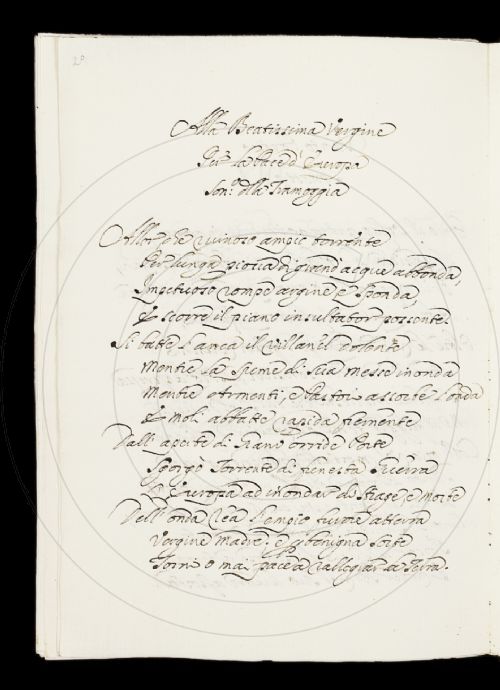 20
Alla Beatissima Vergine
Per la Pace d'Europa
Son.º della Tramoggia
Allor che ruinoso ampio torrente
Per lunga pioggia di grand'acque abbonda,
Impetuoso rompe argine e sponda,
E scorre il piano insultator possente.
Si batte l'anca il villanel dolente
Mentre la speme di sua messe inonda
Mentre armenti, e Pastori assorbe l'onda
E moli abbatte rapida fremente
Dall'aperte di Giano orride Porte
Sgorgò Torrente di funesta Guerra
L'Europa ad inondar di Strage e morte
Dell'onda rea l'empio furore atterra
Vergine Madre: e benigna sorte
Torni o mai pace a rallegrar la Terra.